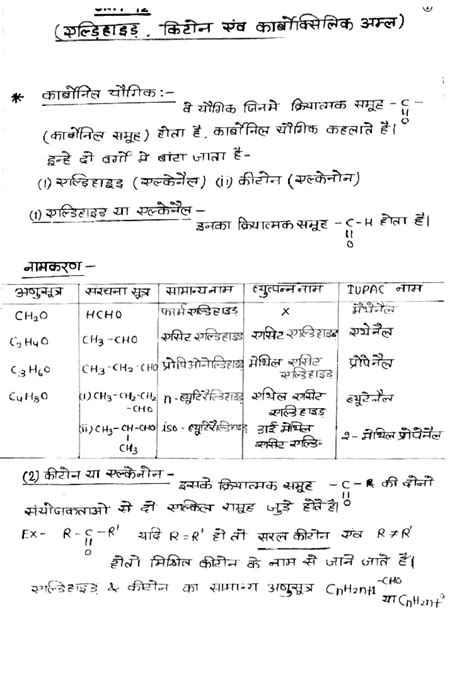 UNIT-12
(एल्डिहाइड, किटोन एंव कार्बोक्सिलिक अम्ल)
* कार्बोनिल यौगिक:-
वे यौगिक जिनमे क्रियात्मक समूह -C-
O
(कार्बोनिल समूह) होता है, कार्बोनिल यौगिक कहलाते है।
इन्हे दो वर्गों मे बांटा जाता है-
(i) एल्डिहाइड (एल्केनैल) (ii) कीटोन (एल्केनोन)
(1) एल्डिहाइड या एल्केनैल-
इनका क्रियात्मक समूह -C-H होता है।
O
नामकरण-
अणुसूत्र संरचना सूत्र सामान्य नाम व्युत्पन्न नाम IUPAC नाम
CH2O HCHO फार्म एल्डिहाइड X मेथेनैल
C2H4O CH3-CHO एसिट एल्डिहाइड एसिट एल्डिहाइड एथेनैल
C3H6O CH3-CH2-CHO प्रोपिओनेल्डिहाइड मेथिल एसिट एल्डिहाइड प्रोपेनैल
C4H8O (i) CH3-CH2-CH2-CHO n-ब्युटिरैल्डिहाइड एथिल एसिट एल्डिहाइड ब्युटेनैल
(ii) CH3-CH-CHO iso-ब्युटिरैल्डिहाइड डाई मेथिल एसिट एल्डि- 2-मेथिल प्रोपेनैल
CH3
(2) कीटोन या एल्केनोन-
इसके क्रियात्मक समूह -C-R की दोनो
O
संयोजकताओ से दो एल्किल समूह जुडे होते है।
Ex- R-C-R' यदि R=R' हो तो सरल कीटोन एंव R≠R'
O
होतो मिश्रित कीटोन के नाम से जाने जाते है।
एल्डिहाइड & कीटोन का सामान्य अणुसूत्र CnH2n+1-CHO
या CnH2n+